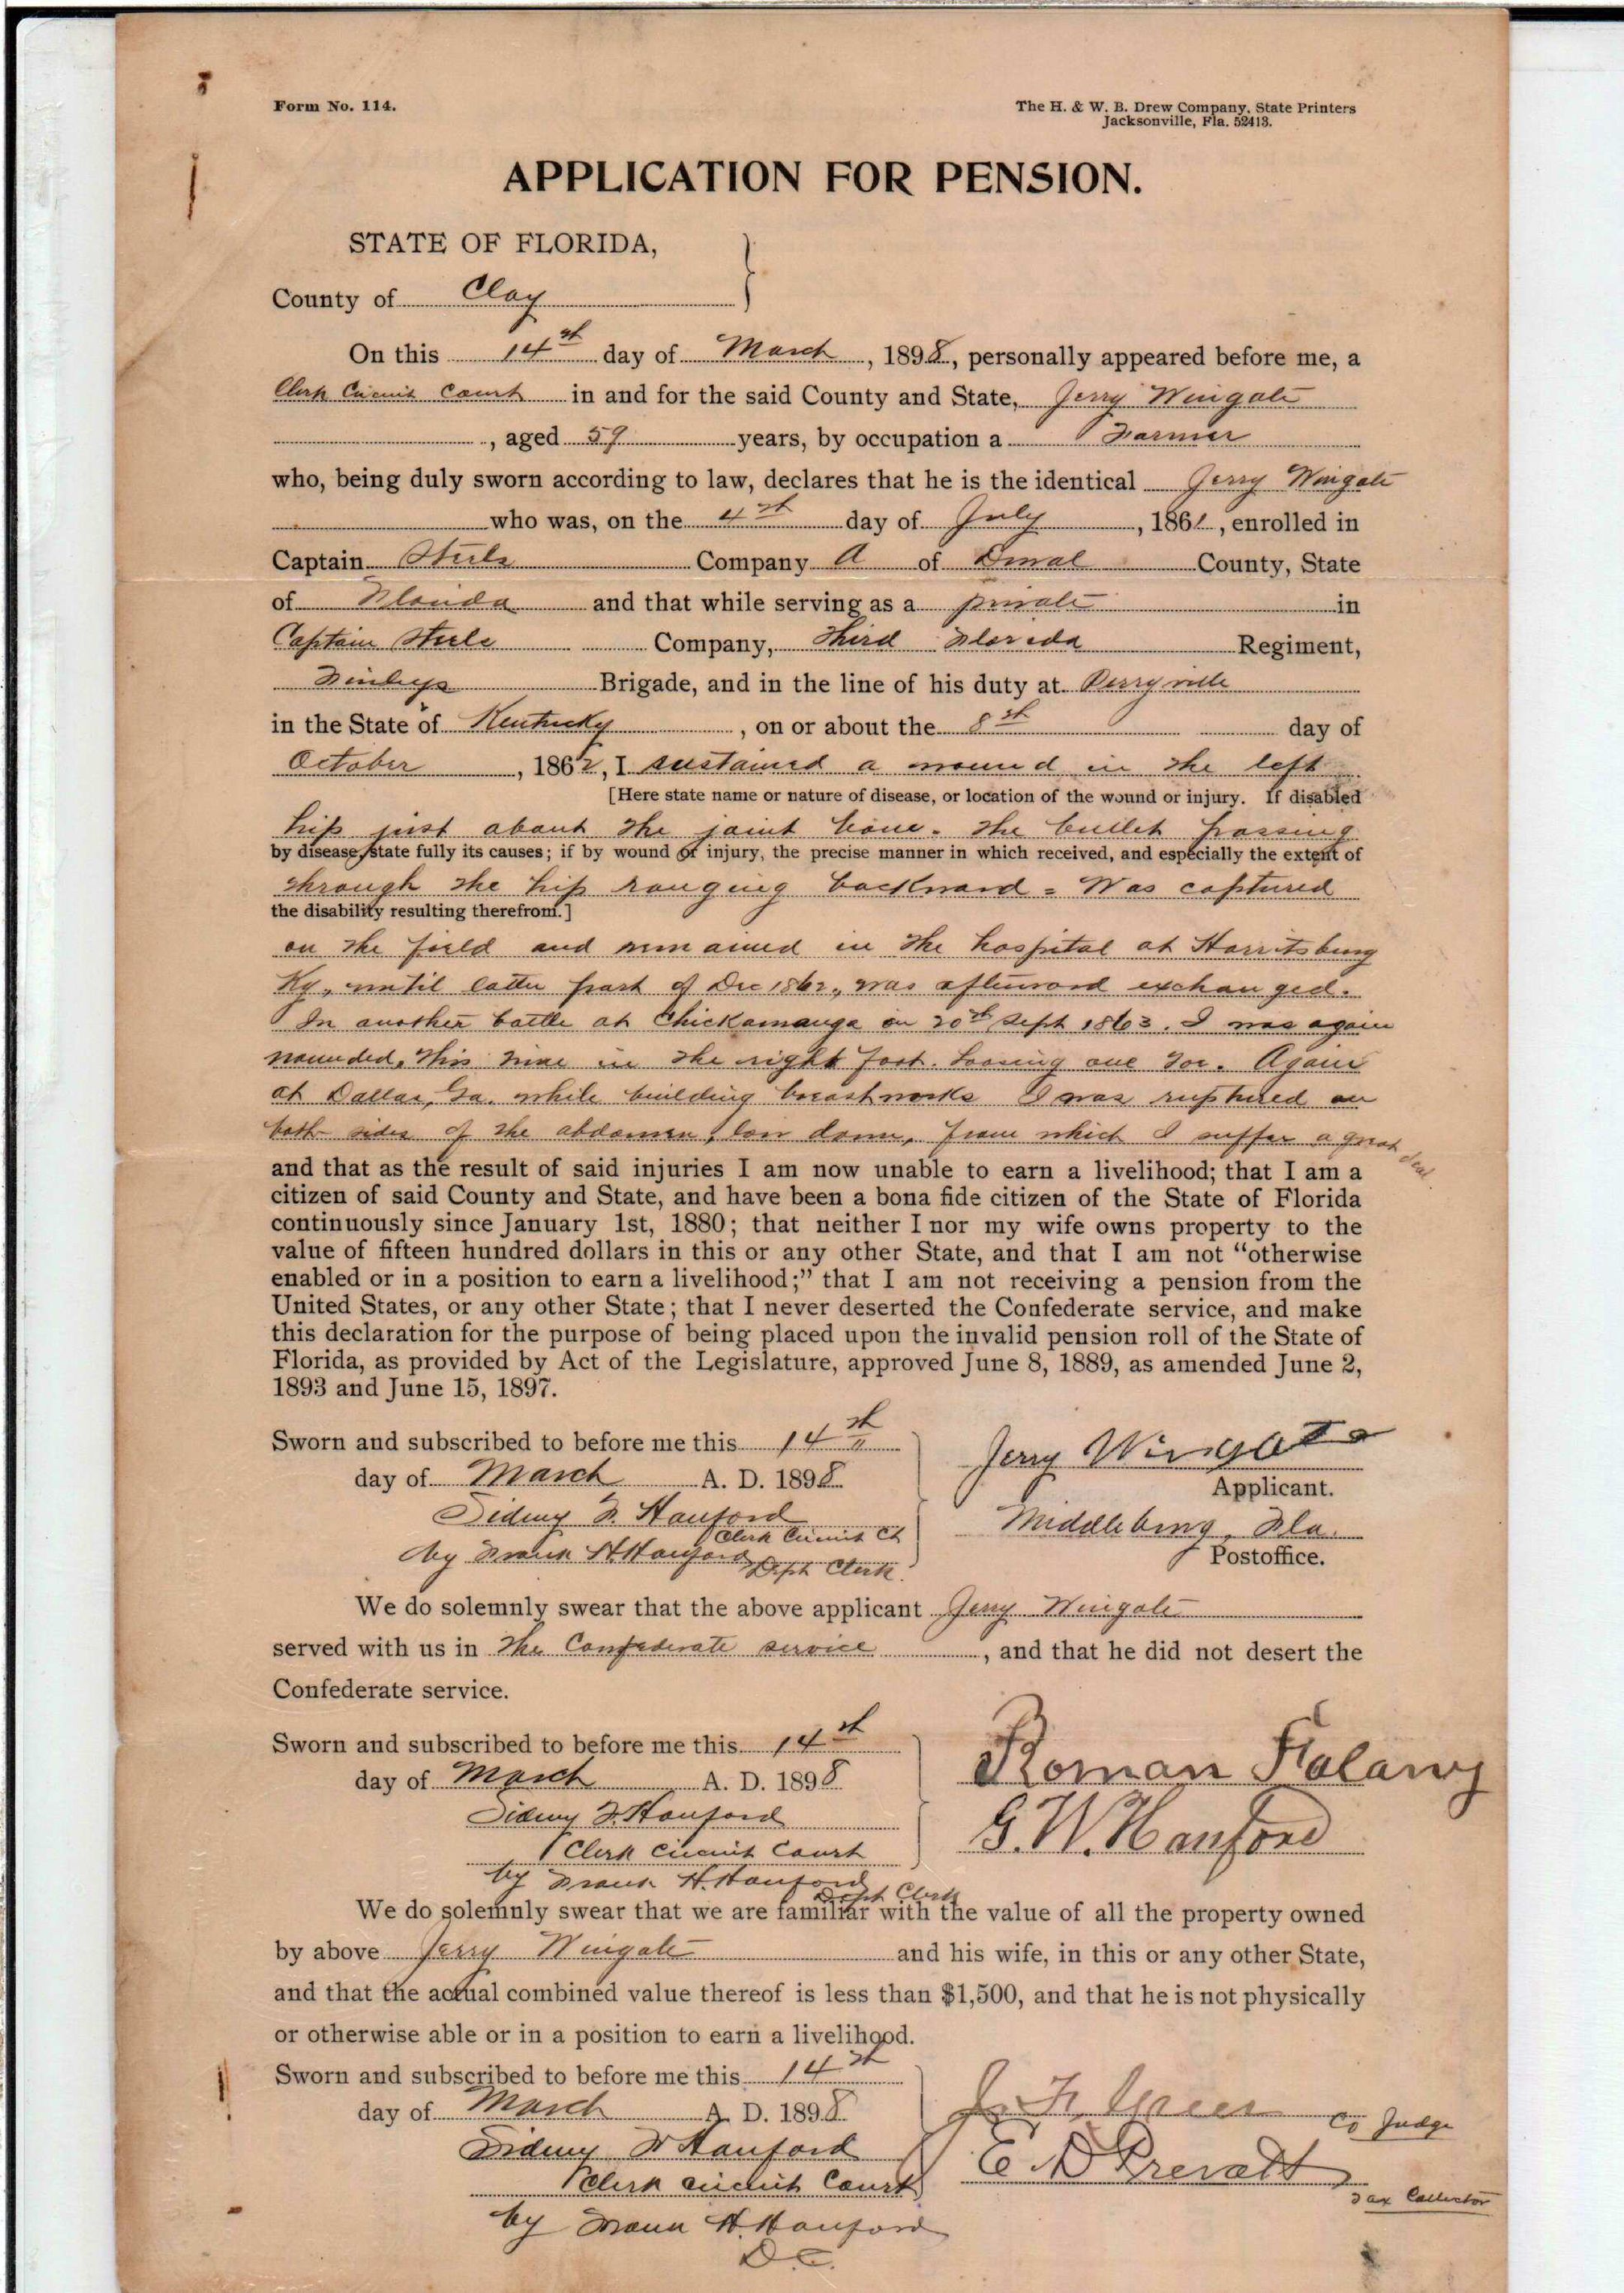 Form No. 114.
The H. & W. B. Drew Company, State Printers
Jacksonville, Fla. 52413.
APPLICATION FOR PENSION.
STATE OF FLORIDA,
County of Clay
On this 14th day of March, 1898, personally appeared before me, a
Clerk Circuit Court in and for the said County and State, Jerry Wingate
, aged 59 years, by occupation a Farmer
who, being duly sworn according to law, declares that he is the identical Jerry Wingate
who was, on the 4th day of July, 1861, enrolled in
Captain Steels Company A of Duval County, State
of Florida and that while serving as a private in
Captain Steele Company, Third Florida Regiment,
Finleys Brigade, and in the line of his duty at Perryville
in the State of Kentucky, on or about the 8th day of
October, 1862, I sustained a wound in the left
[Here state name or nature of disease, or location of the wound or injury. If disabled
hip just about the joint bone. The bullet passing
by disease, state fully its causes; if by wound or injury, the precise manner in which received, and especially the extent of
through the hip ranging backward = Was captured
the disability resulting therefrom.]
on the field and remained in the hospital at Harritsburg
Ky, until latter part of Dec 1862, was afterward exchanged.
In another battle at Chickamauga on 20th Sept 1863. I was again
wounded, this time in the right foot. Loosing one toe. Again
at Dallas, Ga. while building breastworks I was ruptured on
both sides of the abdomen, low down, from which I suffer a great deal.
and that as the result of said injuries I am now unable to earn a livelihood; that I am a
citizen of said County and State, and have been a bona fide citizen of the State of Florida
continuously since January 1st, 1880; that neither I nor my wife owns property to the
value of fifteen hundred dollars in this or any other State, and that I am not “otherwise
enabled or in a position to earn a livelihood;” that I am not receiving a pension from the
United States, or any other State; that I never deserted the Confederate service, and make
this declaration for the purpose of being placed upon the invalid pension roll of the State of
Florida, as provided by Act of the Legislature, approved June 8, 1889, as amended June 2,
1893 and June 15, 1897.
Sworn and subscribed to before me this 14th
day of March A. D. 1898
Sidney F. Hanford
Clerk Circuit Ct
by Frank H. Hanford
Dept Clerk.
Jerry Wingate
Applicant.
Middleburg, Fla.
Postoffice.
We do solemnly swear that the above applicant Jerry Wingate
served with us in The Confederate service, and that he did not desert the
Confederate service.
Sworn and subscribed to before me this 14th
day of March A. D. 1898
Sidney F. Hanford
Clerk Circuit Court
by Frank H. Hanford
Dept Clerk
Roman Falany
G. W. Hanford
We do solemnly swear that we are familiar with the value of all the property owned
by above Jerry Wingate and his wife, in this or any other State,
and that the actual combined value thereof is less than $1,500, and that he is not physically
or otherwise able or in a position to earn a livelihood.
Sworn and subscribed to before me this 14th
day of March A. D. 1898
Sidney F Hanford
Clerk circuit Court
by Frank H. Hanford
D.C.
J. F. Greer Co Judge
E D Prevatt
Tax Collector